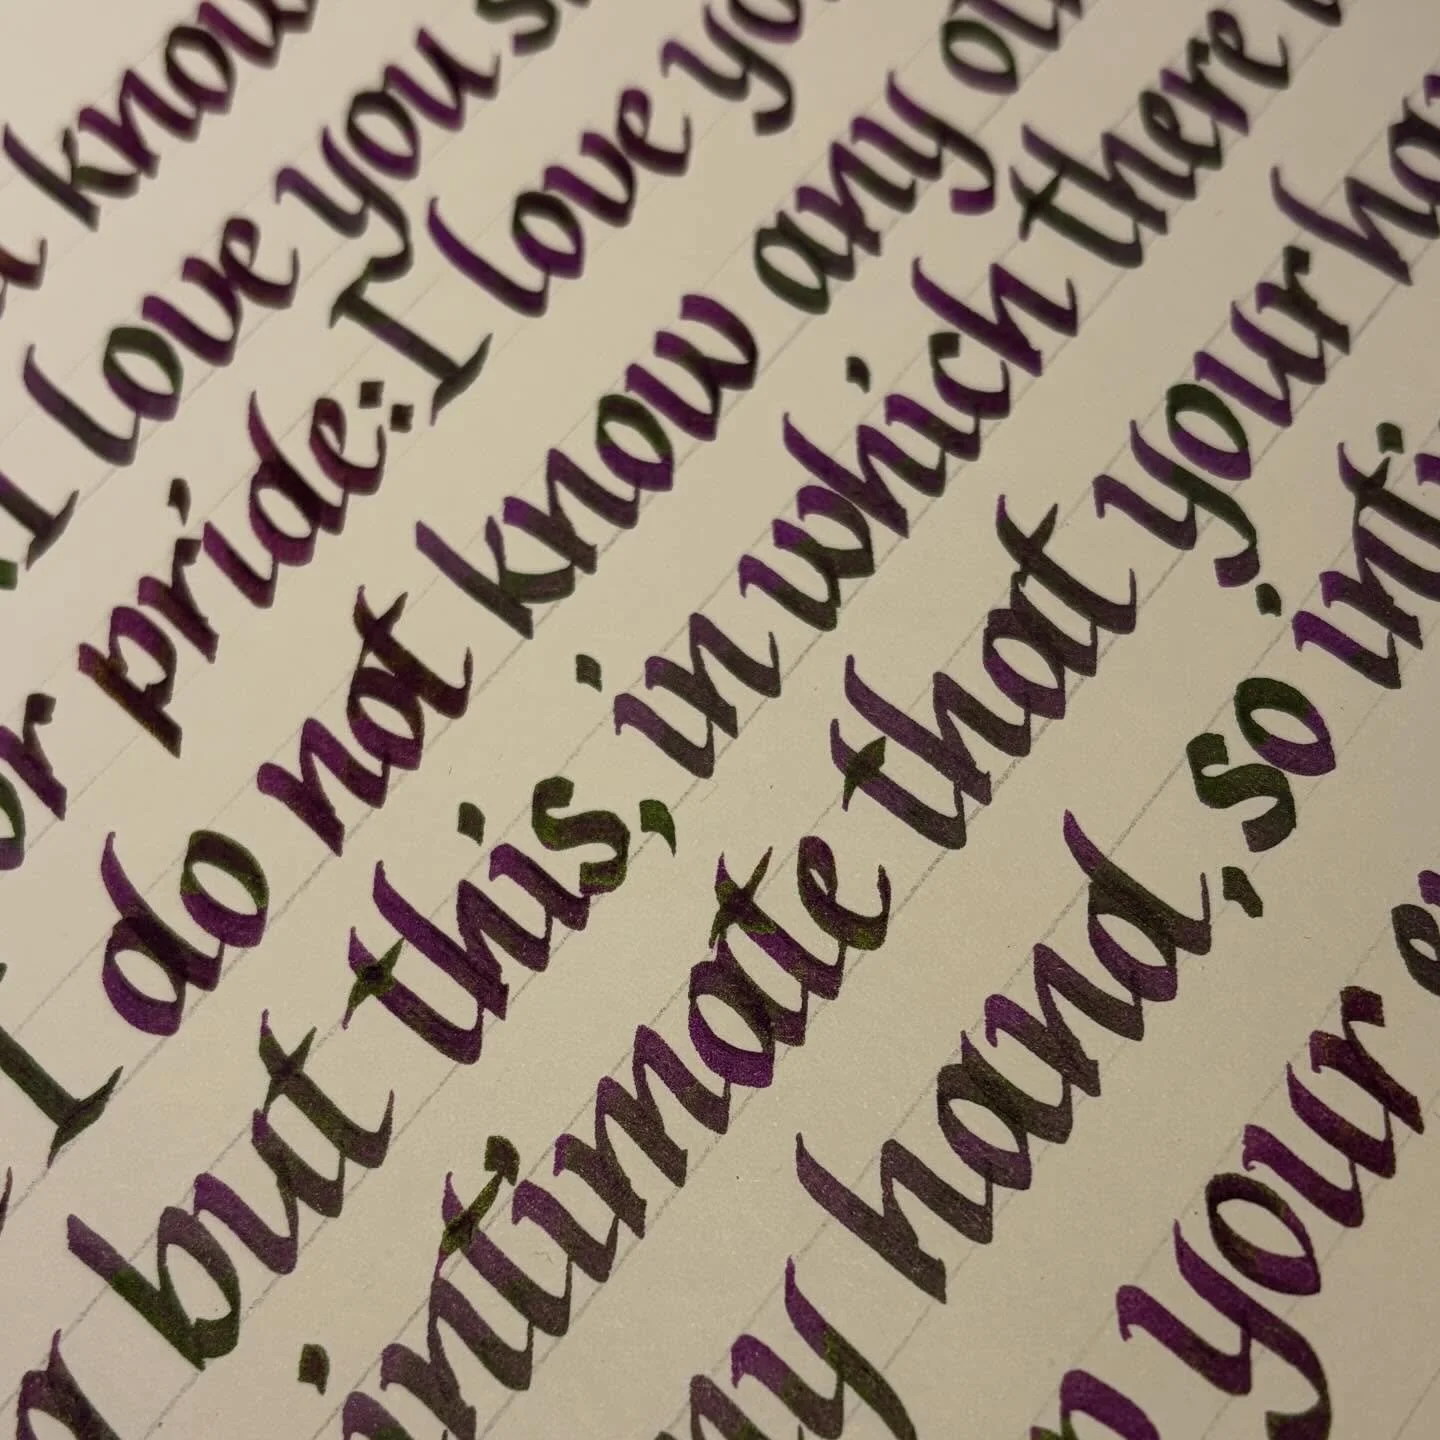 know
I love you s
or pride: I love yo
I do not know any ot
but this, in which there
intimate that your ha
my hand, so inti
your e